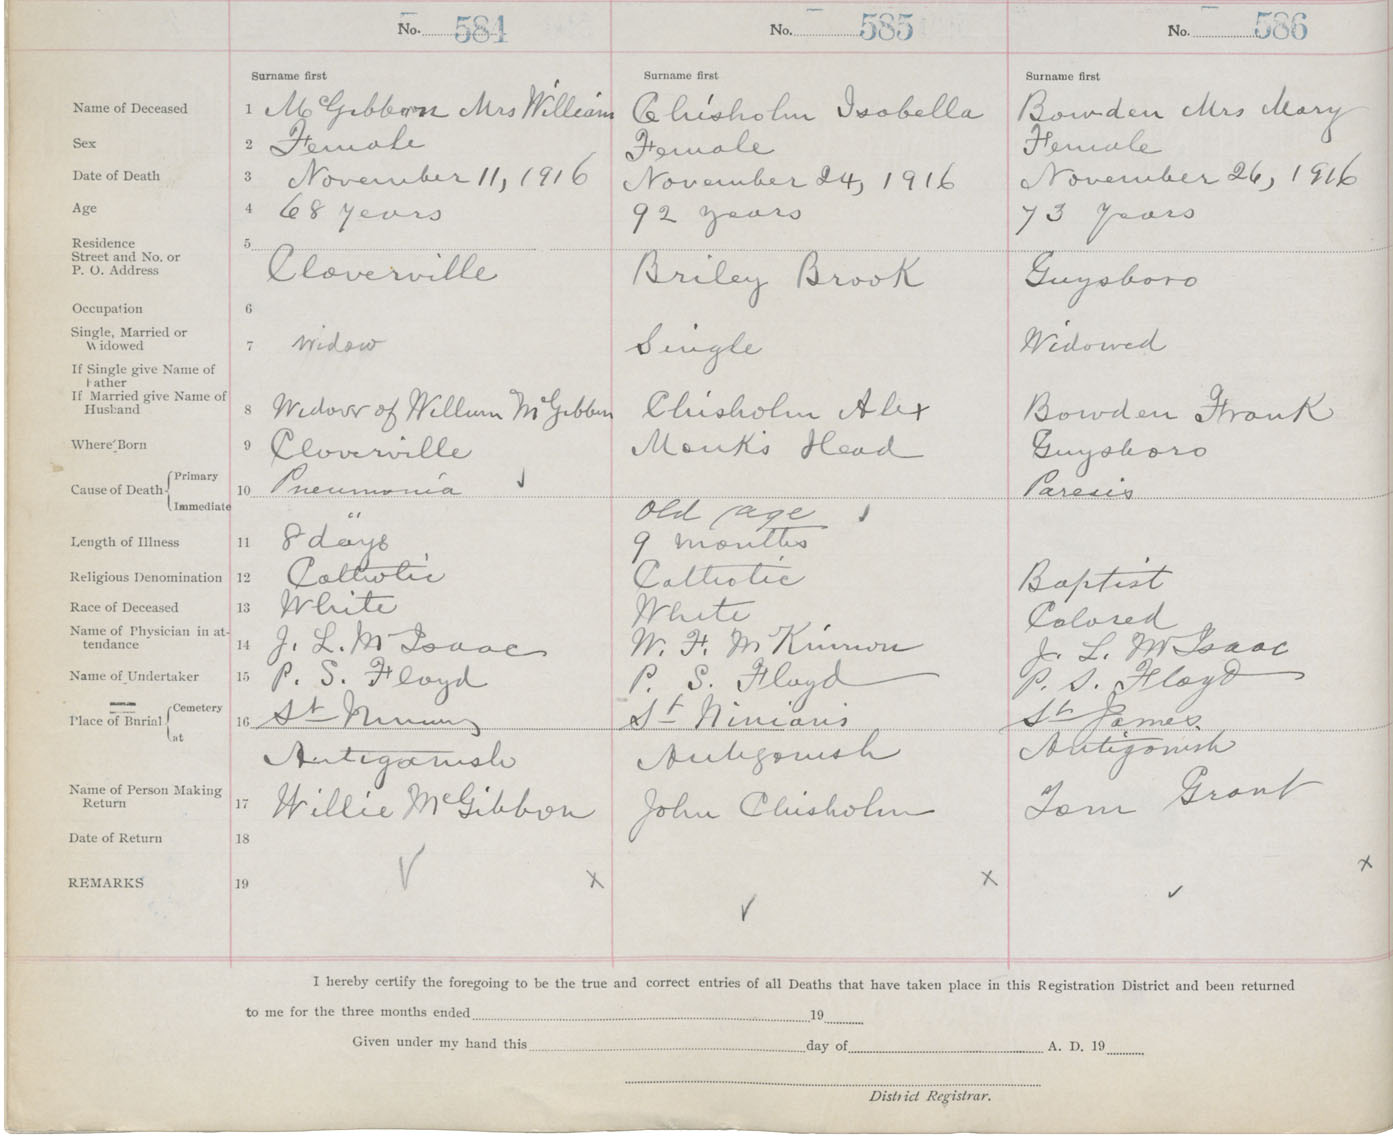 No. 584 No. 585 No. 586
Surname first Surname first Surname first
Name of Deceased 1 McGibbon Mrs William Chisholm Isabella Bowden Mrs Mary
Sex 2 Female Female Female
Date of Death 3 November 11, 1916 November 24, 1916 November 26, 1916
Age 4 68 years 92 years 73 years
Residence 5
Street and No. or
P. O. Address Cloverville Briley Brook Guysboro
Occupation 6
Single, Married or
Widowed 7 widow Single Widowed
If Single give Name of
Father
If Married give Name of
Husband 8 Widow of William McGibbon Chisholm Alex Bowden Frank
Where Born 9 Cloverville Monks Head Guysboro
Cause of Death Primary 10 Pneumonia Paresis
Immediate " Old age
Length of Illness 11 8 days 9 months
Religious Denomination 12 Catholic Catholic Baptist
Race of Deceased 13 White White Colored
Name of Physician in at-
tendance 14 J. L. McIsaac W. F. McKinnon J. L. McIsaac
Name of Undertaker 15 P. S. Floyd P. S. Floyd P. S. Floyd
Place of Burial Cemetery 16 St Ninians St Ninians St James
at Antigonish Antigonish Antigonish
Name of Person Making
Return 17 Willie McGibbon John Chisholm Tom Grant
Date of Return 18
REMARKS 19 ✓ x ✓ x ✓ x
I hereby certify the foregoing to be the true and correct entries of all Deaths that have taken place in this Registration District and been returned
to me for the three months ended 19
Given under my hand this day of A. D. 19
District Registrar.